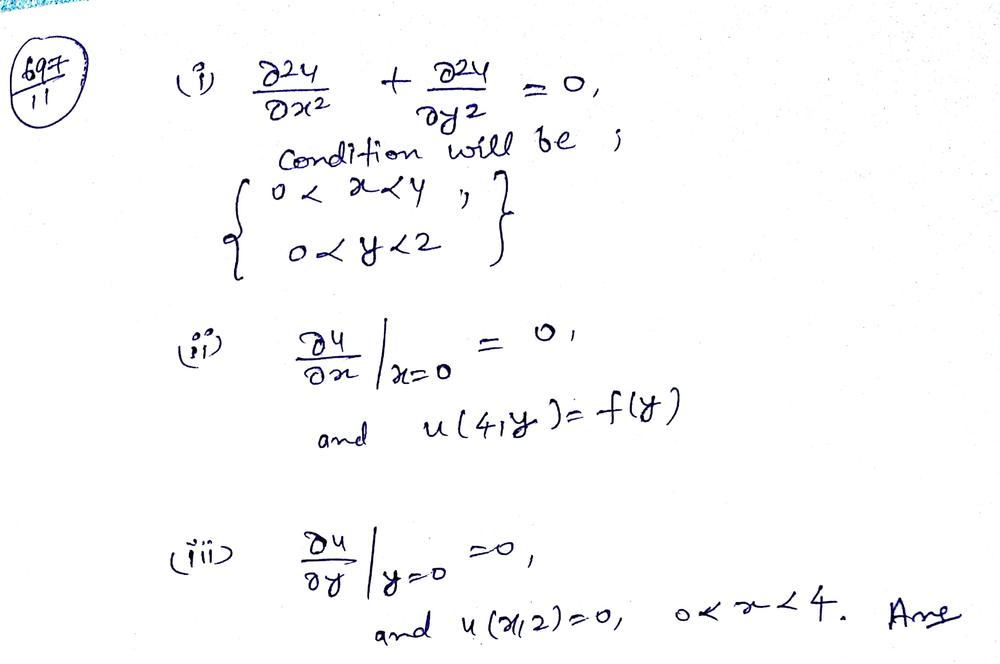 697/11
(i) ∂²u/∂x² + ∂²u/∂y² = 0,
Condition will be ;
{ 0 < x < 4 , }
{ 0 < y < 2 }
(ii) ∂u/∂x |x=0 = 0,
and u(4,y) = f(y)
(iii) ∂u/∂y |y=0 = 0,
and u(x,2) = 0, 0 < x < 4. Ans